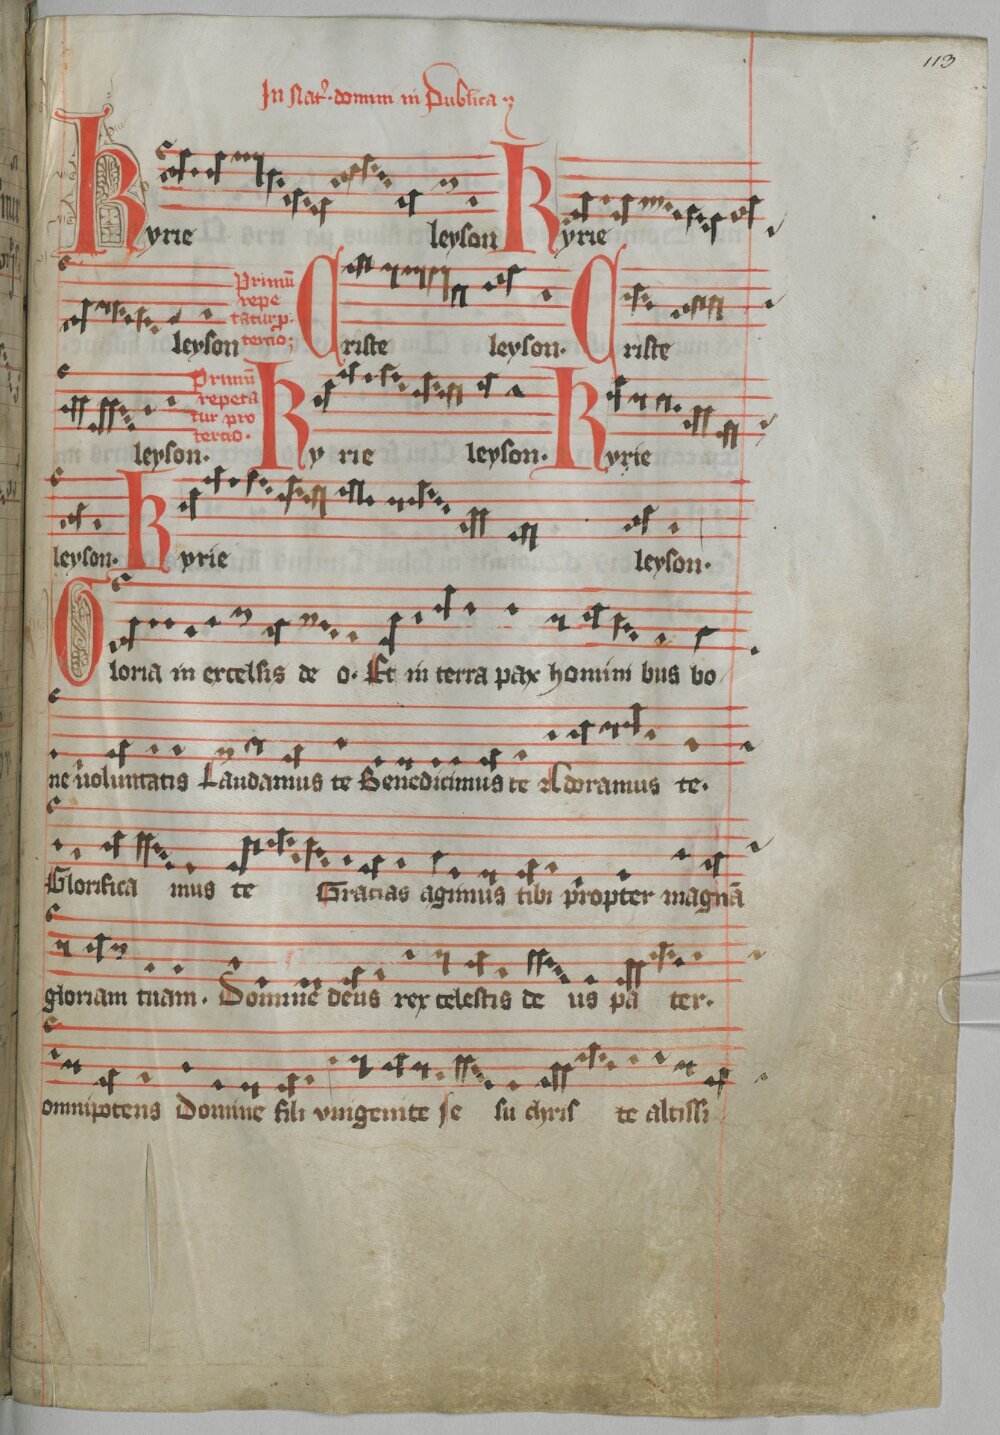 113
In Nat᷎. domini in Publica
Kyrie leyson Kyrie
leyson Primū repetatur p. tercio; Criste leyson. Criste
leyson. Primū repetatur pro tercio. Ky rie leyson. Kyrie
leyson. Kyrie leyson.
Gloria in excelsis de o. Et in terra pax homini bus bo
ne uoluntatis Laudamus te Benedicimus te Adoramus te.
Glorifica mus te Gracias agimus tibi propter magnā
gloriam tuam. Domine deus rex celestis de us pa ter.
omnipotens Domine fili vnigenite Je su chris te altissi